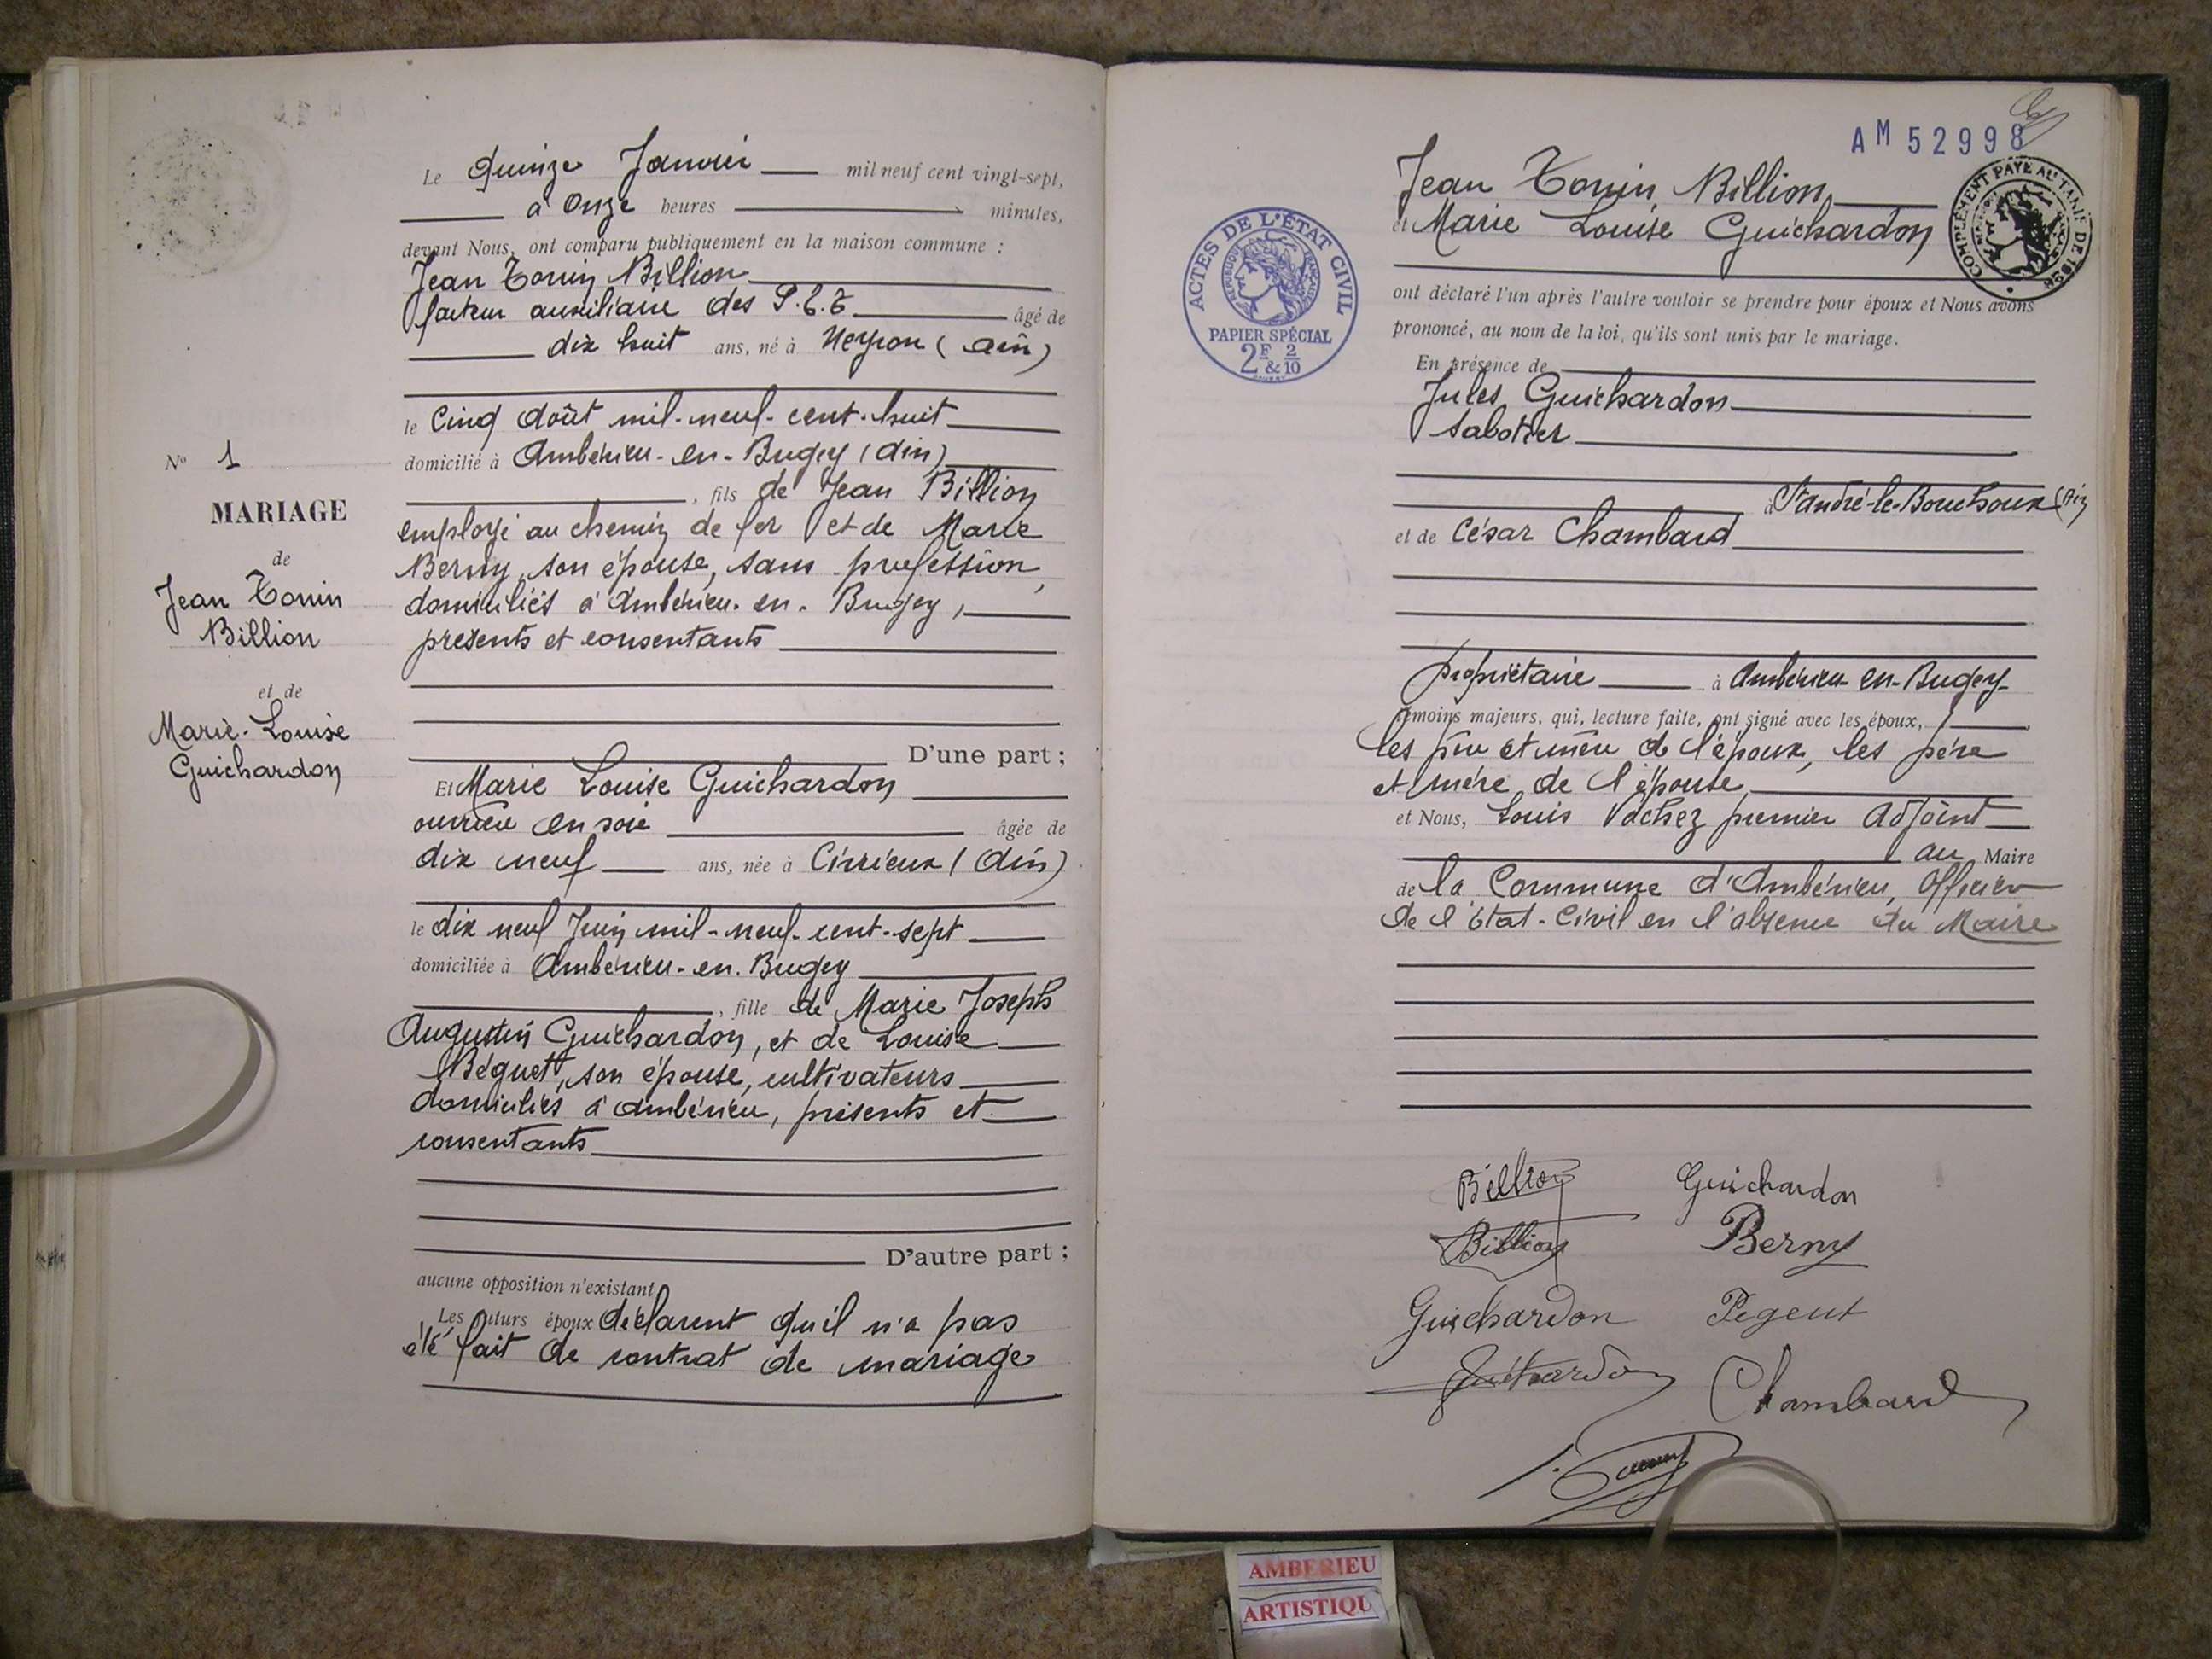 Le Quinze Janvier mil neuf cent vingt-sept,
à Onze heures minutes,
devant Nous, ont comparu publiquement en la maison commune :
Jean Tonin Billion
facteur auxiliaire des P.T.T âgé de
dix huit ans, né à Neyron (Ain)
le Cinq Août mil-neuf-cent-huit
domicilié à Ambérieu-en-Bugey (Ain)
, fils de Jean Billion
employé au chemin de fer et de Marie
Berny, son épouse, sans profession,
domiciliés à Ambérieu-en-Bugey,
présents et consentants
D'une part ;
Et Marie Louise Guichardon
ouvrière en soie âgée de
dix neuf ans, née à Civrieux (Ain)
le dix neuf Juin mil-neuf-cent-sept
domiciliée à Ambérieu-en-Bugey
, fille de Marie Joseph
Augustin Guichardon, et de Louise
son épouse, cultivateurs
domiciliés à Ambérieu, présents et
consentants
D'autre part ;
aucune opposition n'existant
Les futurs époux déclarent qu'il n'a pas
été fait de contrat de mariage
No 1
MARIAGE
de
Jean Tonin
Billion
et de
Marie-Louise
Guichardon
AM 52998
Jean Tonin Billion
et Marie Louise Guichardon
ACTES DE L'ÉTAT CIVIL
RÉPUBLIQUE FRANÇAISE
PAPIER SPÉCIAL
2F & 2/10
COMPLÉMENT PAYÉ AU TARIF DE
ont déclaré l'un après l'autre vouloir se prendre pour époux et Nous avons
prononcé, au nom de la loi, qu'ils sont unis par le mariage.
En présence de
Jules Guichardon
Sabotier
à St André-le-Bouchoux (Ain)
et de César Chambard
propriétaire à Ambérieu-en-Bugey
témoins majeurs, qui, lecture faite, ont signé avec les époux,
les père et mère de l'époux, les père
et mère de l'épouse
et Nous, Louis Vachez premier Adjoint
au Maire
de la Commune d'Ambérieu, Officier
de l'État-Civil en l'absence du Maire
Billion Guichardon
Billion Berny
Guichardon Pegeut
Guichardon Chambard
AMBERIEU
ARTISTIQU